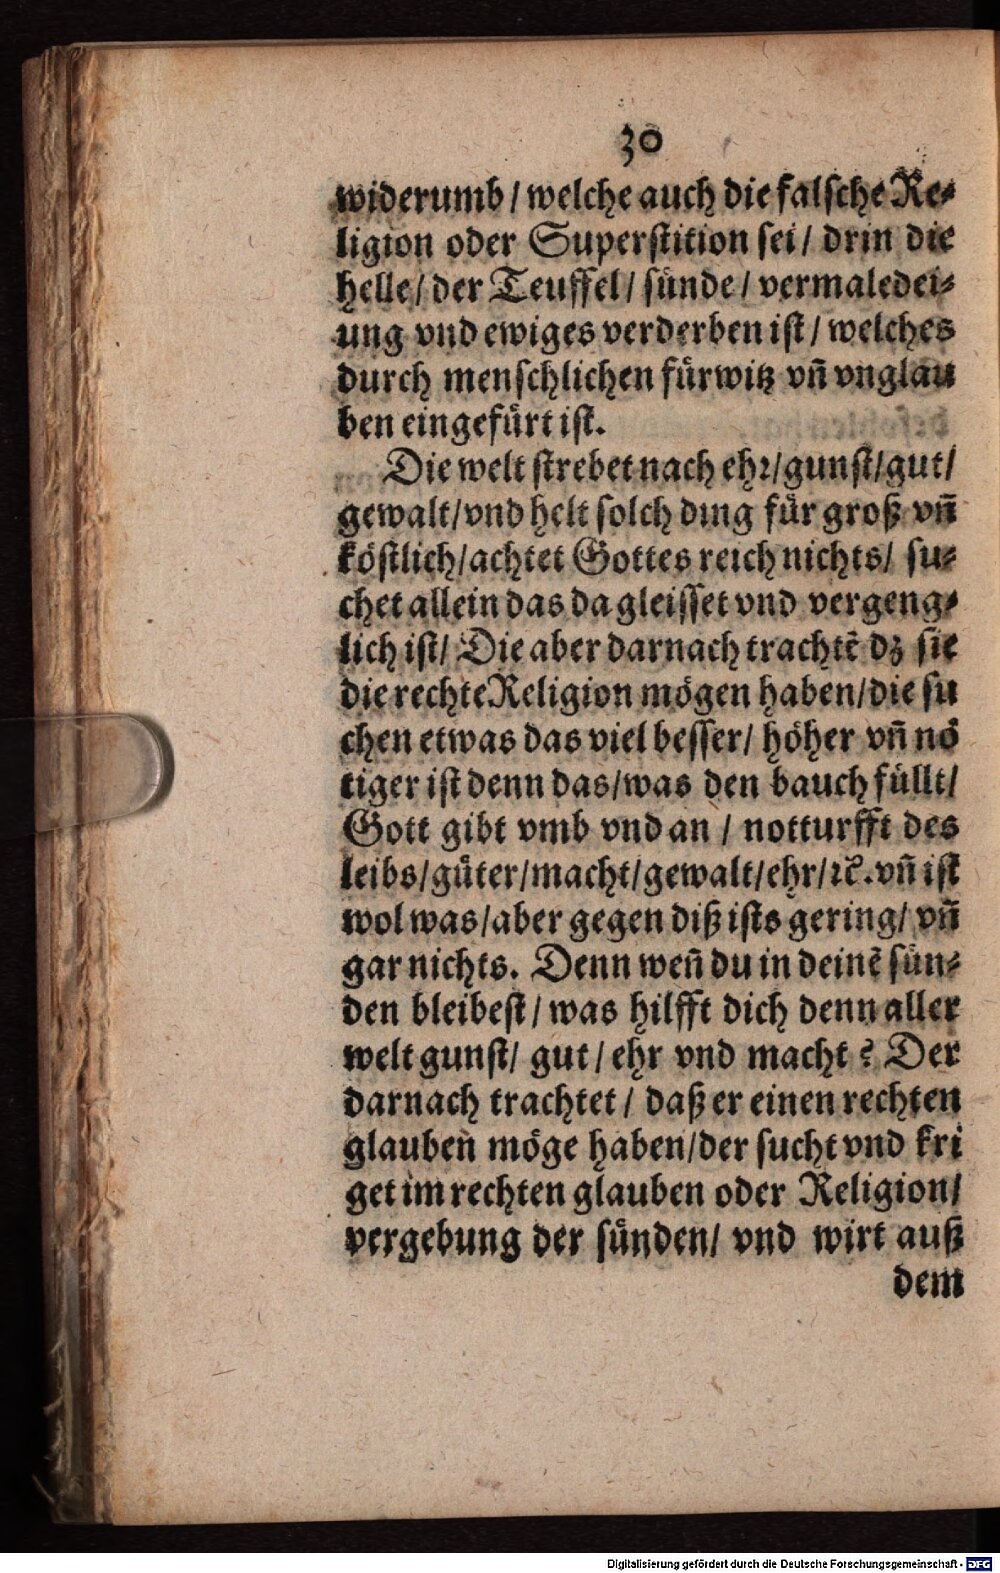 30
widerumb / welche auch die falsche Re⸗
ligion oder Superstition sei / drin die
helle / der Teuffel / sünde / vermaledei⸗
ung vnd ewiges verderben ist / welches
durch menschlichen fürwitz vñ vnglau
ben eingefürt ist.
Die welt strebet nach ehꝛ / gunst / gut /
gewalt / vnd helt solch ding für groß vñ
köstlich / achtet Gottes reich nichts / su⸗
chet allein das da gleisset vnd vergeng⸗
lich ist / Die aber darnach trachtẽ dz sie
die rechte Religion mögen haben / die su
chen etwas das viel besser / höher vñ nö
tiger ist denn das / was den bauch füllt /
Gott gibt vmb vnd an / notturfft des
leibs / güter / macht / gewalt / ehr / ꝛc̃. vñ ist
wol was / aber gegen diß ists gering / vñ
gar nichts. Denn weñ du in deinẽ sün⸗
den bleibest / was hilfft dich denn aller
welt gunst / gut / ehr vnd macht ? Der
darnach trachtet / daß er einen rechten
glauben möge haben / der sucht vnd kri
get im rechten glauben oder Religion /
vergebung der sünden / vnd wirt auß
dem
Digitalisierung gefördert durch die Deutsche Forschungsgemeinschaft - DFG